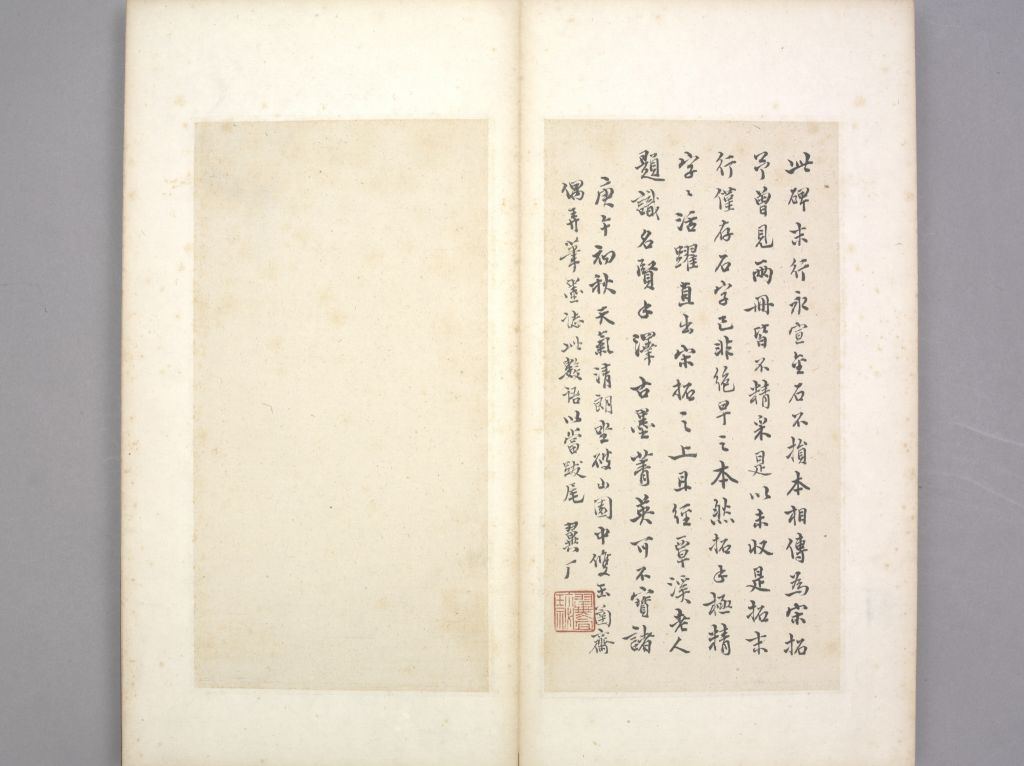 此碑末行永宣金石不損本相傳為宋拓
予曾見兩冊皆不精采是以未收是拓末
行僅存石字已非絕早之本然拓手極精
字〻活躍直出宋拓之上且經覃溪老人
題識名賢手澤古墨菁英可不寶諸
庚午初秋天氣清朗坐破山園中雙玉齋
偶弄筆墨誌此數語以當跋尾 翼厂